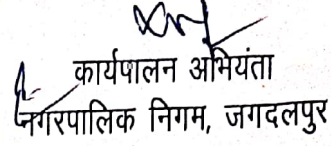 कार्यपालन अभियंता
नगरपालिक निगम, जगदलपुर